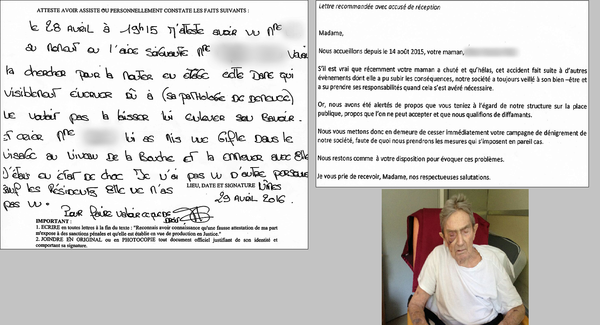 ATTESTE AVOIR ASSISTE OU PERSONNELLEMENT CONSTATE LES FAITS SUIVANTS :
le 28 AVRIL à 19h15 J'Atteste avoir vu Mme
au moment ou l'aide soignante Mme venir
la chercher pour la monter au
visiblement énervée dû à (sa pathologie de Démence)
ne voulait pas la laisser lui enlever son Bavoir.
Mme lui as mis une Gifle Dans le
visage au niveau de la Bouche et la emmener avec elle
J'étais en état de choc Je n'ai pas vu d'autre personne
sauf les Résidents Elle ne m'as
pas vu.
LIEU, DATE ET SIGNATURE
29 Avril 2016
Pour faire valoir ce que de
droit
IMPORTANT :
1. ECRIRE en toutes lettres à la fin du texte : "Reconnais avoir connaissance qu'une fausse attestation de ma part
m'expose à des sanctions pénales et qu'elle est établie en vue de production en Justice."
2. JOINDRE EN ORIGINAL ou en PHOTOCOPIE tout document officiel justifiant de son identité et
comportant sa signature.
Lettre recommandée avec accusé de réception
Madame,
Nous accueillons depuis le 14 août 2015, votre maman,
S'il est vrai que récemment votre maman a chuté et qu'hélas, cet accident fait suite à d'autres
évènements dont elle a pu subir les conséquences, notre société a toujours veillé à son bien –être et
a su prendre ses responsabilités quand cela s'est avéré nécessaire.
Or, nous avons été alertés de propos que vous teniez à l'égard de notre structure sur la place
publique, propos que l'on ne peut accepter et que nous qualifions de diffamants.
Nous vous mettons donc en demeure de cesser immédiatement votre campagne de dénigrement de
notre société, faute de quoi nous prendrons les mesures qui s'imposent en pareil cas.
Nous restons comme à votre disposition pour évoquer ces problèmes.
Je vous prie de recevoir, Madame, nos respectueuses salutations.